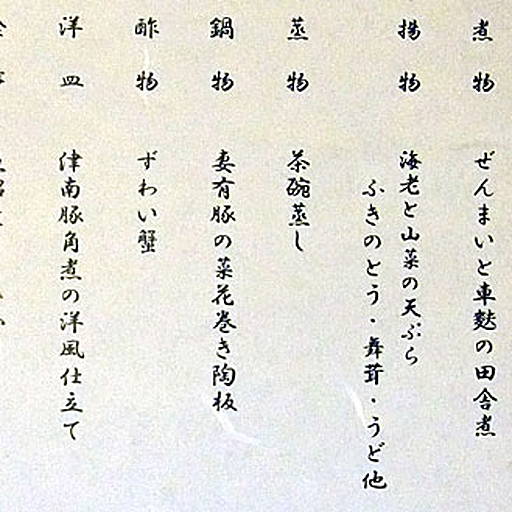 煮物 ぜんまいと車麩の田舎煮
揚物 海老と山菜の天ぷら
ふきのとう・舞茸・うど他
蒸物 茶碗蒸し
鍋物 妻有豚の菜花巻き陶板
酢物 ずわい蟹
洋皿 津南豚角煮の洋風仕立て